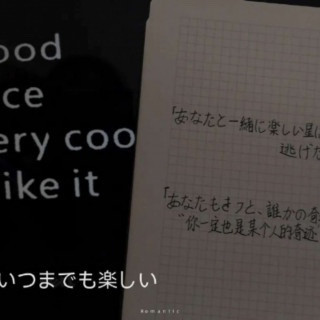 ood
ce
ery coo
like it
「あなたと一緒に楽しい星に
逃げた
「あなたもきっと、誰かの奇
"你一定也是某个人的奇迹
いつまでも楽しい
Romantic